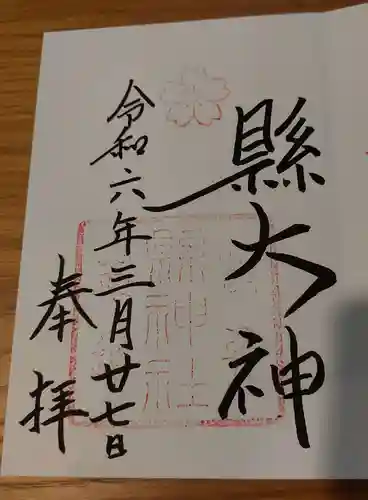 縣大神
令和六年三月廿七日
奉拝